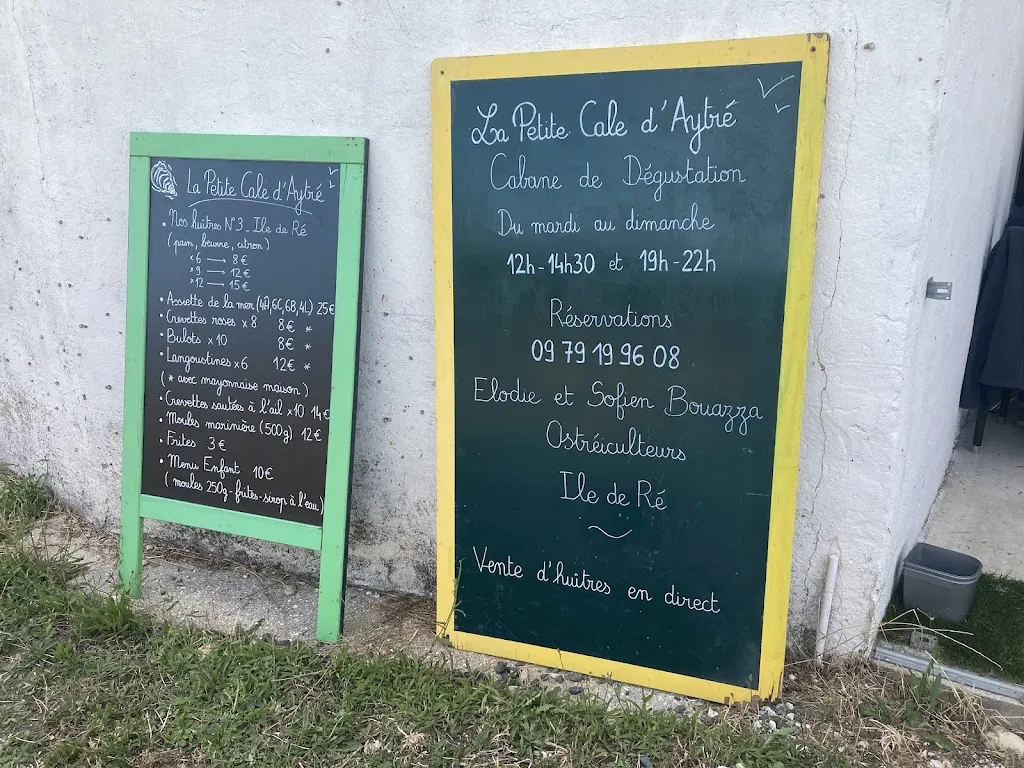 La Petite Cale d'Aytré
• Nos huîtres N°3 - Ile de Ré
( pain, beurre, citron )
x 6 → 8 €
x 9 → 12 €
x 12 → 15 €
• Assiette de la mer (4A, 6C, 6B, 4L) 25€
• Crevettes roses x 8 8€ *
• Bulots x 10 8€ *
• Langoustines x 6 12€ *
( * avec mayonnaise maison )
• Crevettes sautées à l'ail x10 14€
• Moules marinière (500g) 12€
• Frites 3€
• Menu Enfant 10€
( moules 250g - frites - sirop à l'eau)
La Petite Cale d'Aytré
Cabane de Dégustation
Du mardi au dimanche
12h - 14h30 et 19h - 22h
Réservations
09 79 19 96 08
Elodie et Sofien Bouazza
Ostréiculteurs
Ile de Ré
Vente d'huîtres en direct